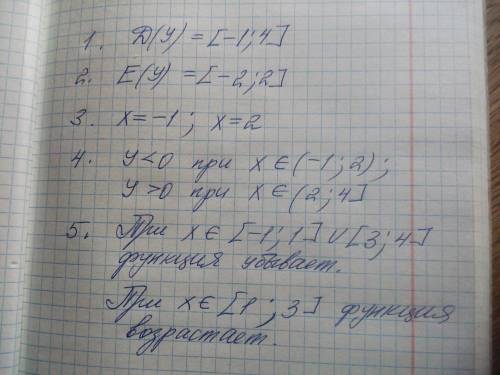 1. D(y) = [-1; 4]
2. E(y) = [-2; 2]
3. x = -1; x = 2
4. y < 0 при x ∈ (-1; 2);
y > 0 при x ∈ (2; 4]
5. При x ∈ [-1; 1] ∪ [3; 4]
функция убывает.
При x ∈ [1; 3] функция
возрастает.